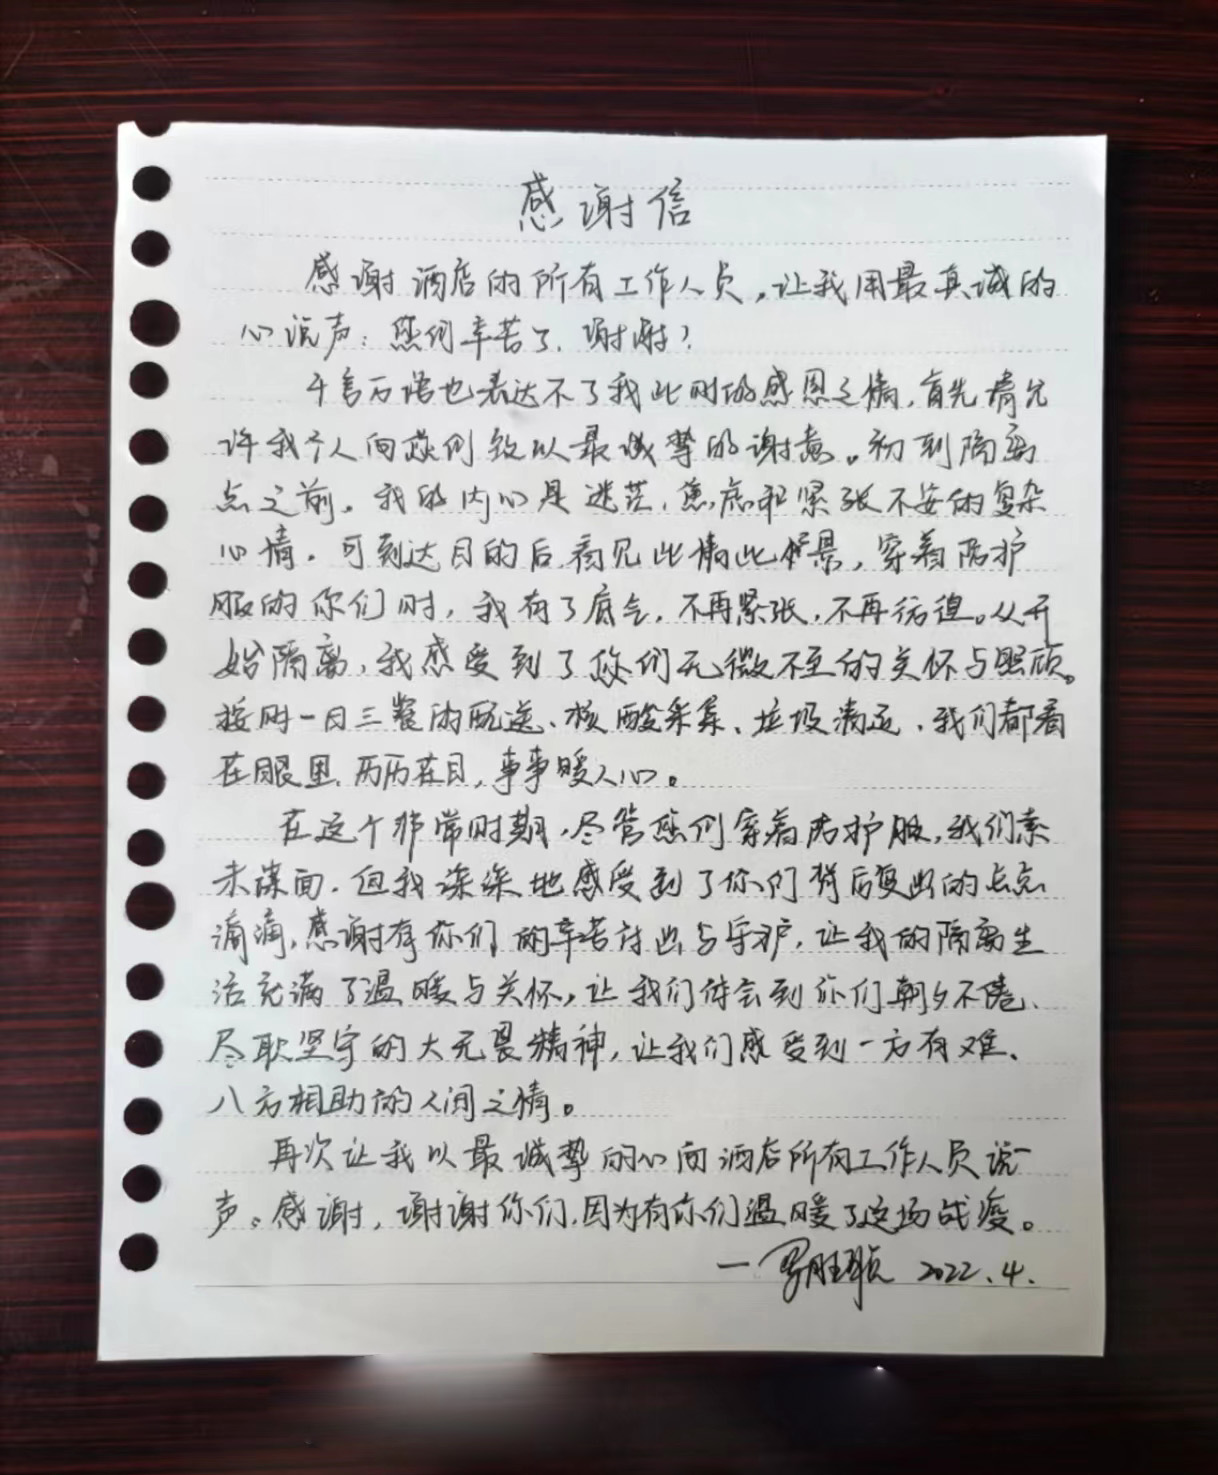 感谢信
感谢酒店的所有工作人员，让我用最真诚的
心说声：您们辛苦了、谢谢！
千言万语也表达不了我此时的感恩之情，首先请允
许我个人向您们致以最诚挚的谢意。初到隔离
点之前。我的内心是迷茫、焦虑和紧张不安的复杂
心情。可到达目的后，看见此情此景，穿着防护
服的你们时，我有了底气，不再紧张，不再彷徨。从开
始隔离，我感受到了您们无微不至的关怀与照顾。
按时一日三餐的配送、核酸采集、垃圾清运，我们都看
在眼里、历历在目，事事暖人心。
在这个非常时期，尽管您们穿着防护服，我们素
未谋面，但我深深地感受到了你们背后复出的点点
滴滴，感谢有你们的辛苦付出与守护，让我的隔离生
活充满了温暖与关怀，让我们体会到你们朝夕不倦、
尽职坚守的大无畏精神，让我们感受到一方有难、
八方相助的人间之情。
再次让我以最诚挚的心向酒店所有工作人员说一
声：感谢，谢谢你们，因为有你们温暖了这场战疫。
一 2022.4.